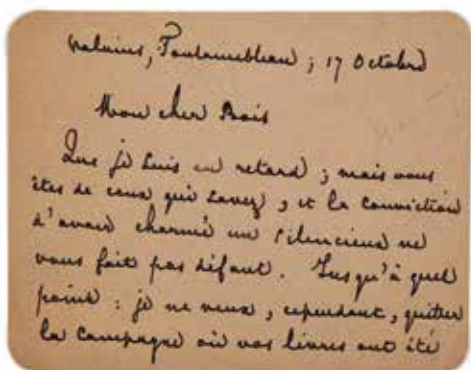 Valvins, Fontainebleau ; 17 Octobre
Mon cher Bois
Que je suis en retard ; mais vous
êtes de ceux qui savez, et la conviction
d'avoir charmé un silencieux ne
vous fait pas défaut. Jusqu'à quel
point : je ne veux, cependant, quitter
la campagne où vos livres ont été